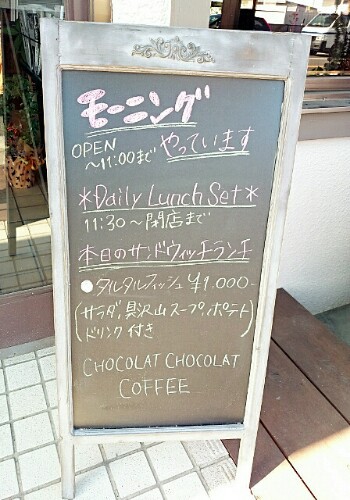 モーニング
OPEN
~11:00まで やっています
*Daily Lunch Set*
11:30~閉店まで
本日のサンドウィッチランチ
●タルタルフィッシュ ¥1.000-
(サラダ,具沢山スープ,ポテト
ドリンク付き)
CHOCOLAT CHOCOLAT
COFFEE